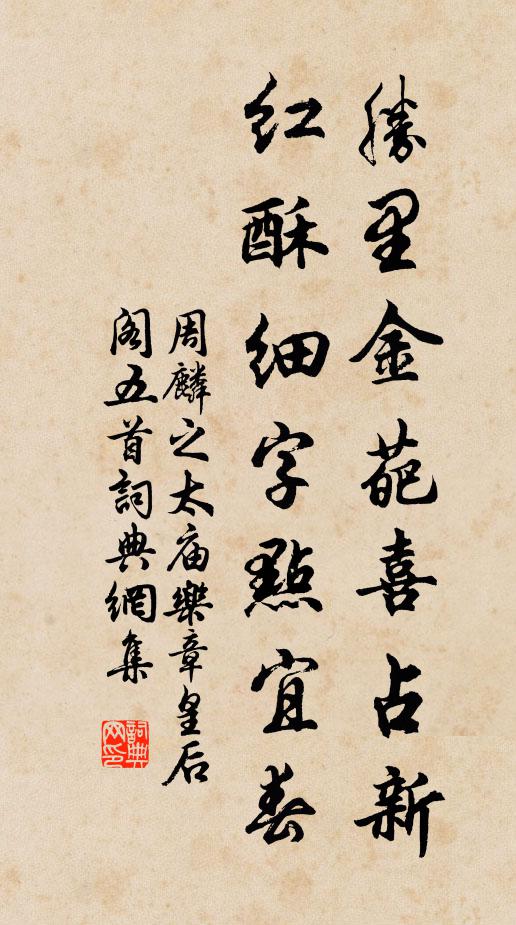 勝里金葩喜占新
红酥细字點宜春
周麟之太庙樂章皇后
阁五首詞典網集
詞典
网印